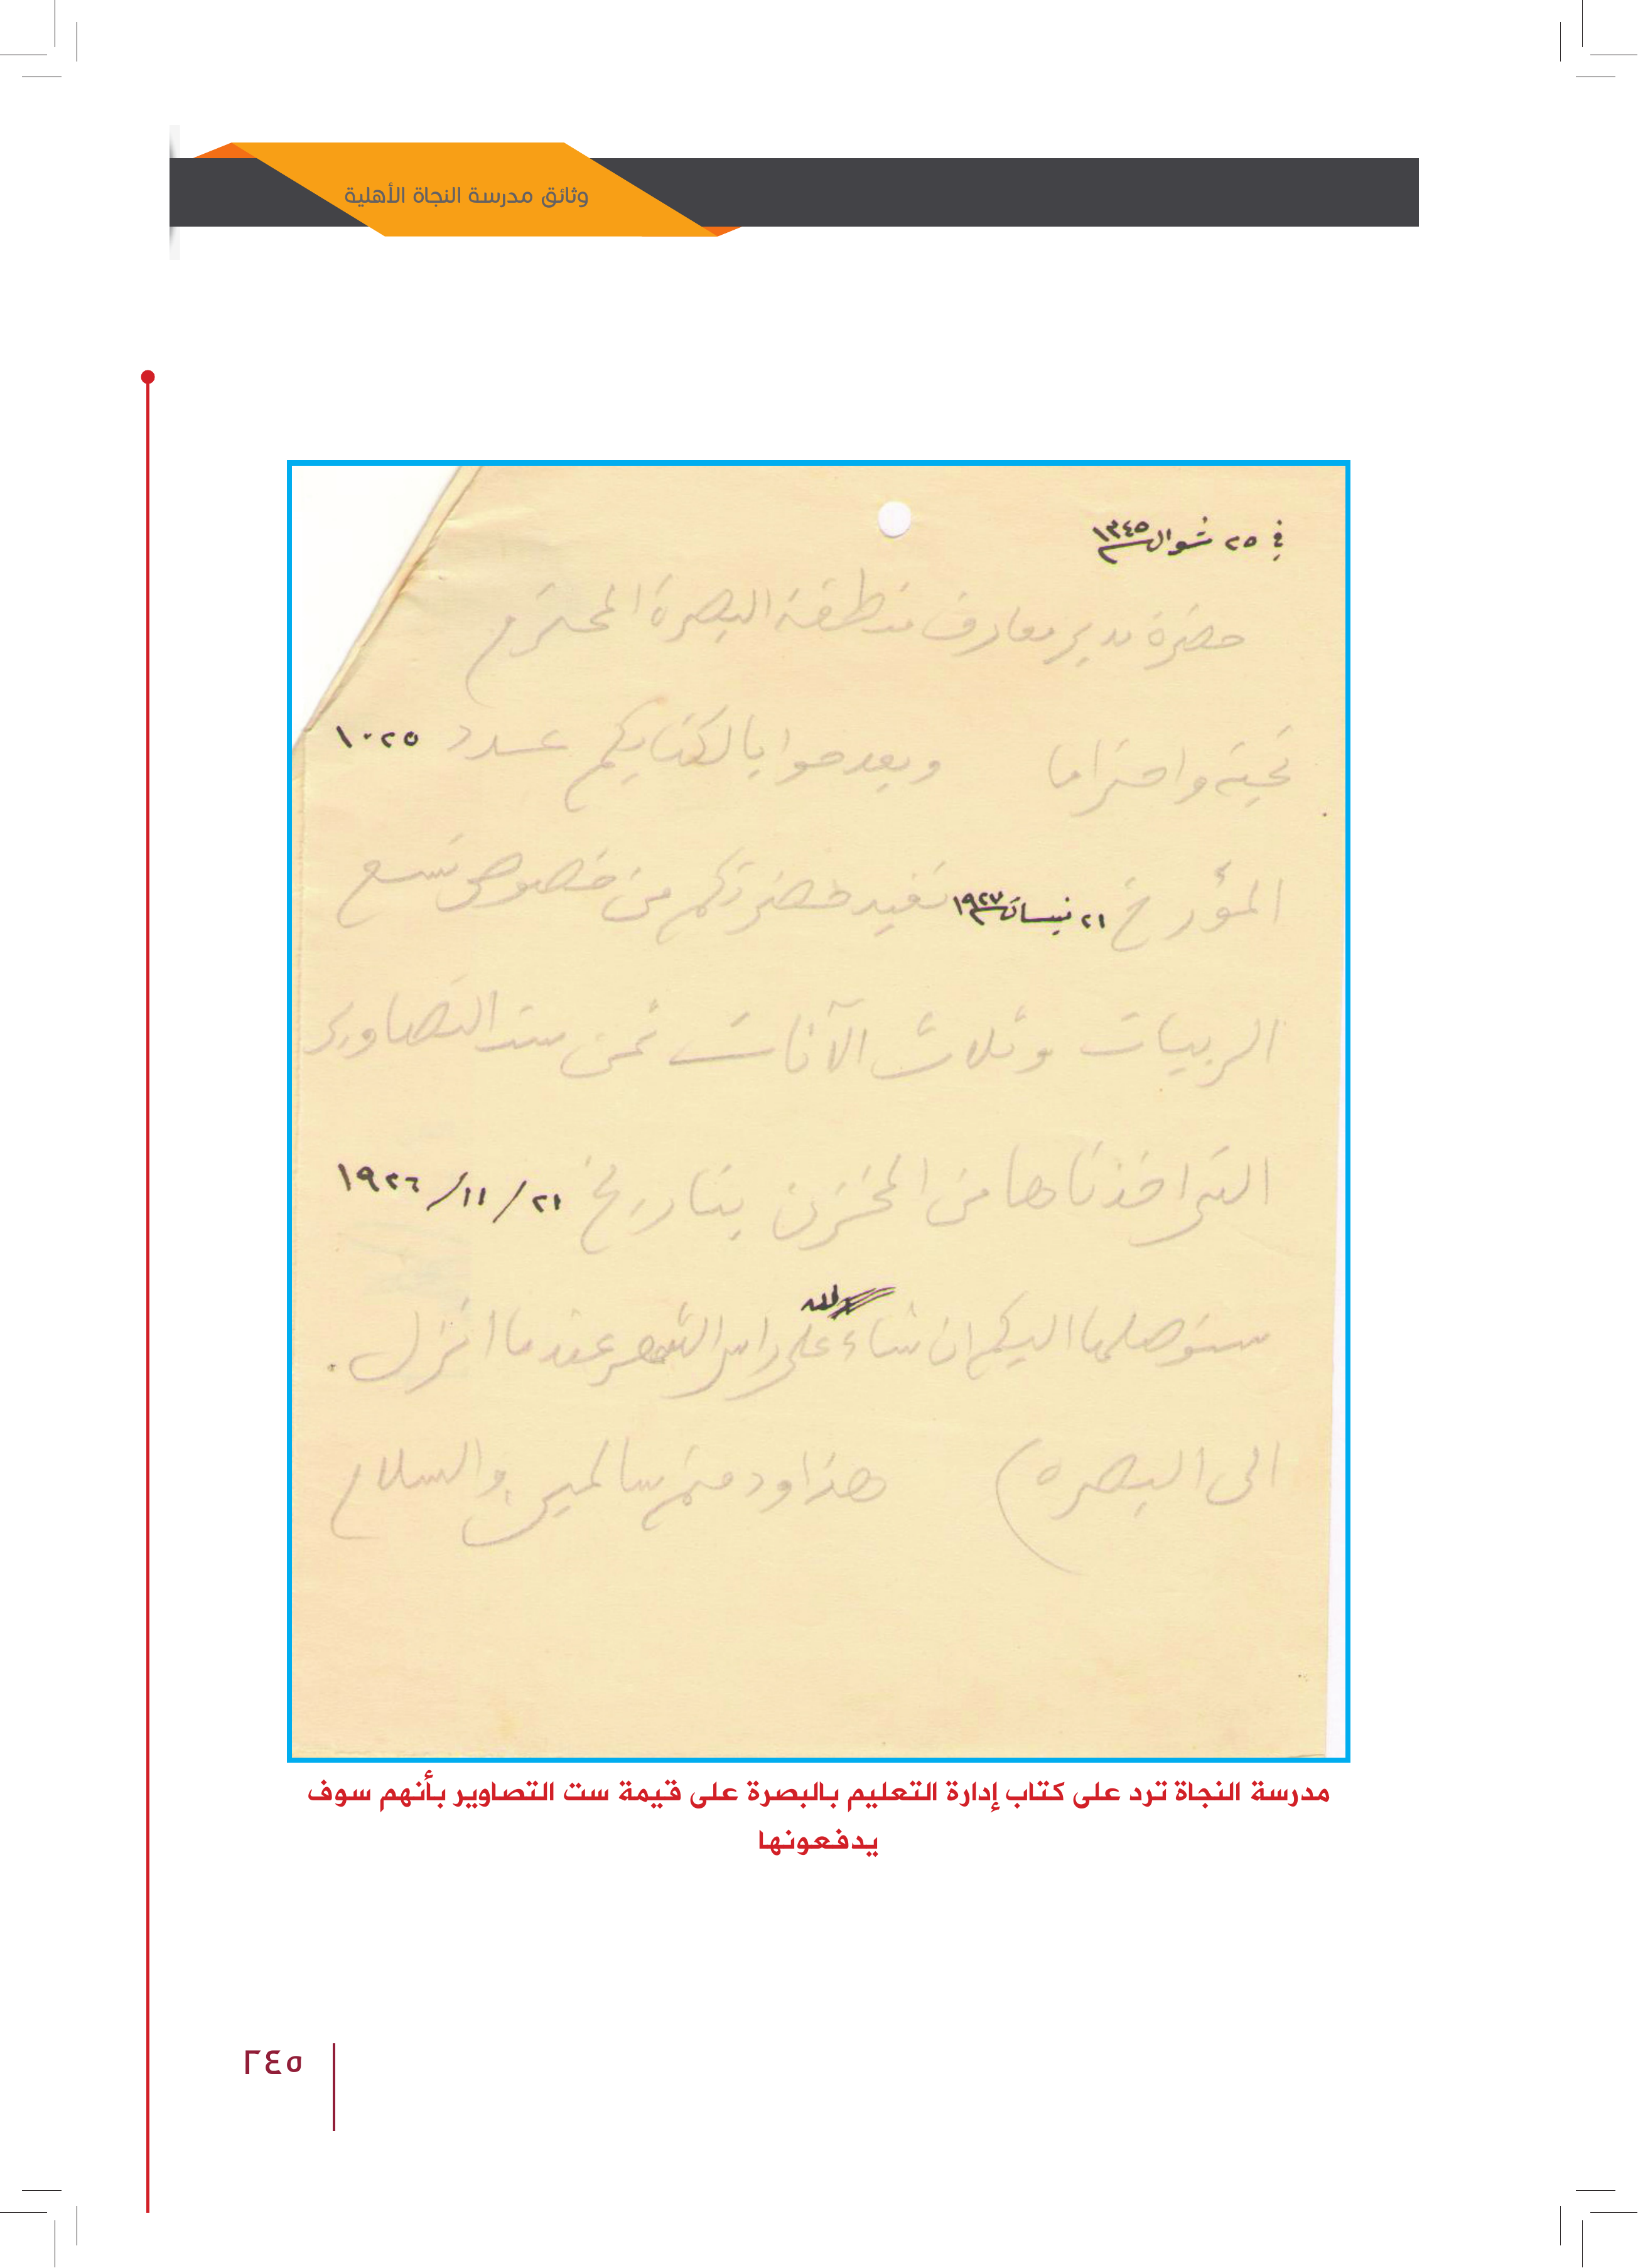 وثائق مدرسة النجاة الأهلية
في ٢٥ شوال ١٣٤٥
حضرة مدير معارف منطقة البصرة المحترم
تحية واحتراما وبعد جوابا لكتابكم عدد ١٠٢٥
المؤرخ ٢١ نيسان ١٩٢٧ نفيد حضرتكم من خصوص تسع
الربيات وثلاث الآنات ثمن ست التصاوير
التي اخذناها من المخزن بتاريخ ٢١/ ١١/ ١٩٢٦
سنوصلها اليكم ان شاء الله على راس الشهر عندما انزل
الى البصره) هذا ودمتم سالمين والسلام
مدرسة النجاة ترد على كتاب إدارة التعليم بالبصرة على قيمة ست التصاوير بأنهم سوف
يدفعونها
٢٤٥